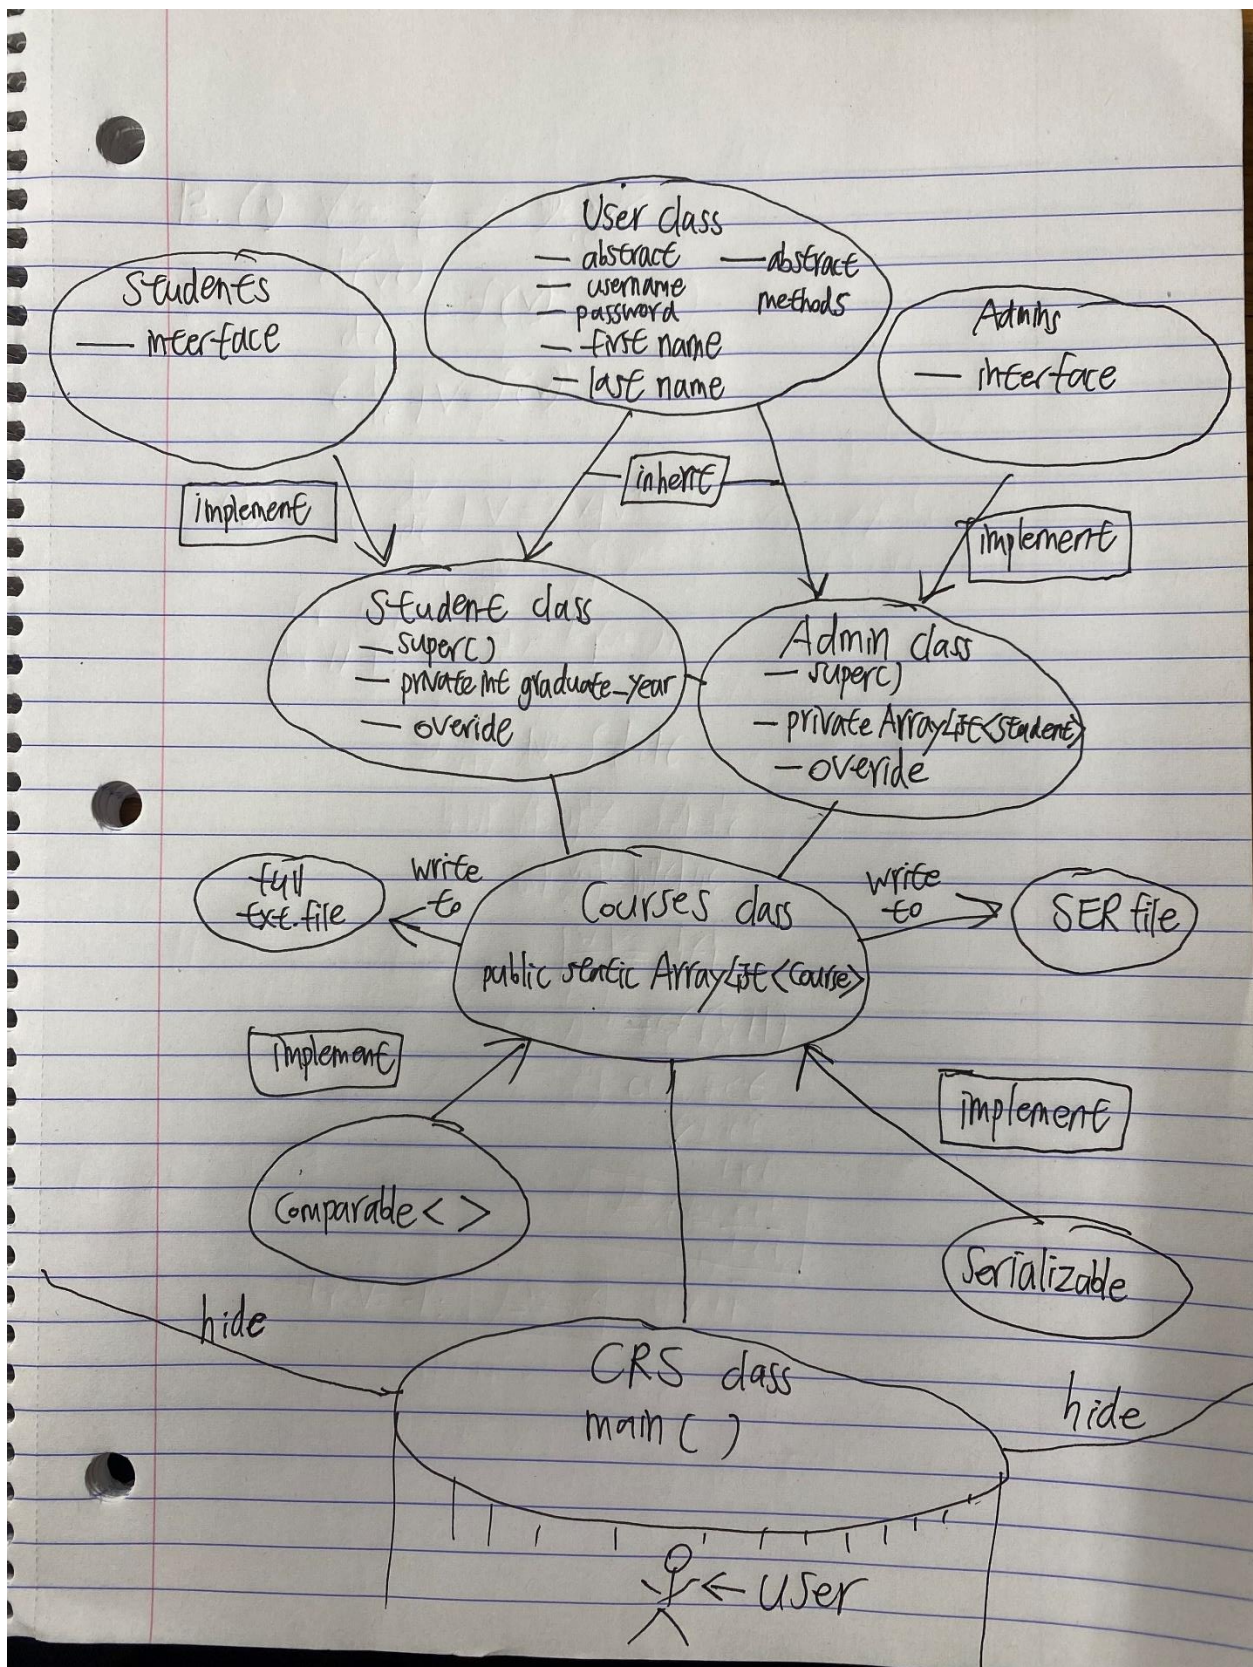 User class
— abstract — abstract
— username methods
— password
— first name
— last name
Students
— interface
Admins
— interface
implement
inherit
implement
Student class
— super()
— private int graduate_year
— overide
Admin class
— super()
— private ArrayList<Student>
— overide
full
txt.file
write
to
Courses class
public static ArrayList<Course>
write
to
SER file
implement
implement
Comparable < >
Serializable
hide
CRS class
main ( )
hide
← user